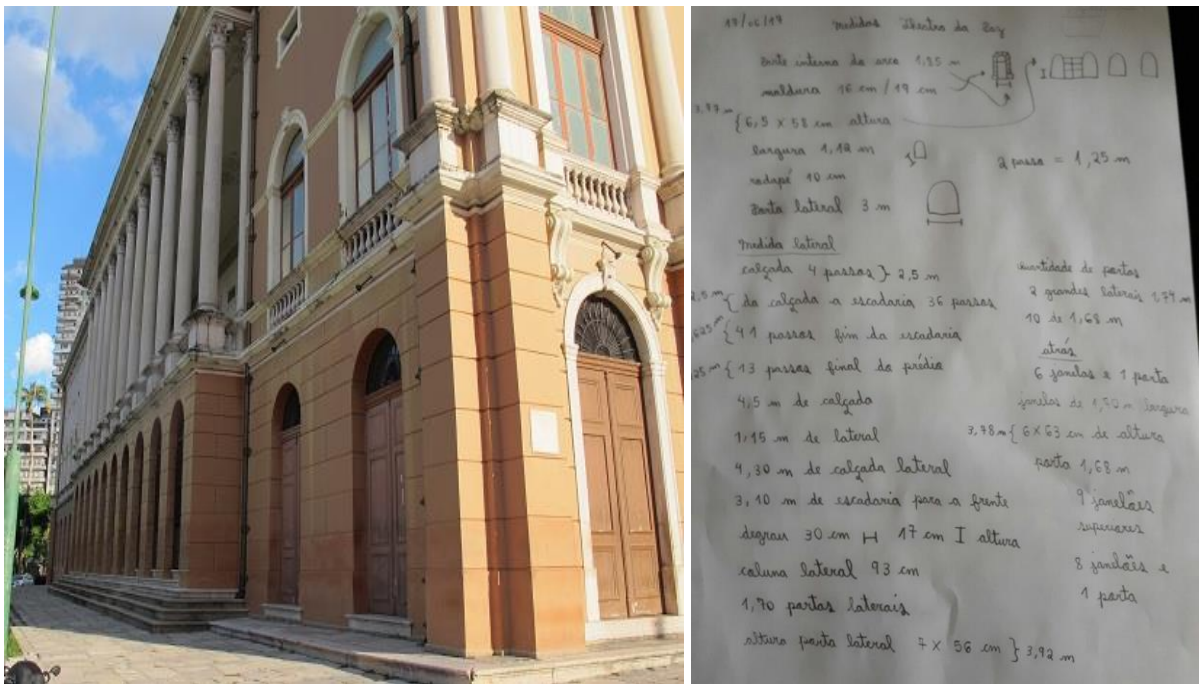 medidas dentro da
parte interna do arco 1,25 m
moldura 16 cm / 19 cm
{ 6,5 x 58 cm altura
largura 1,12 m
2 passo = 1,25 m
rodapé 10 cm
Porta lateral 3 m
Medida lateral
calçada 4 passos } 2,5 m
{ da calçada a escadaria 36 passos
{ 41 passos fim da escadaria
{ 13 passos final do prédio
4,5 m de calçada
1,15 m de lateral
4,30 m de calçada lateral
3,10 m de escadaria para a frente
degrau 30 cm H 17 cm I altura
coluna lateral 93 cm
1,70 portas laterais
altura porta lateral 7 x 56 cm } 3,92 m
quantidade de portas
2 grandes laterais 1,74 m
10 de 1,68 m
atrás
6 janelas e 1 porta
janelas de largura
3,78 m { 6 x 63 cm de altura
porta 1,68 m
9 janelões
superiores
8 janelões e
1 porta